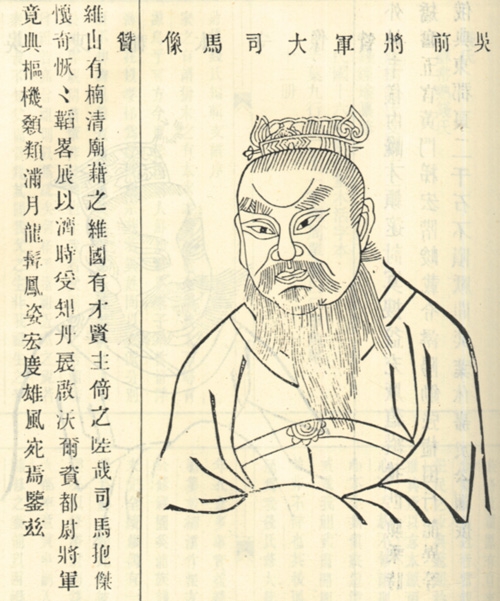 吳前將軍大司馬像贊
維山有楠清廟藉之維國有才賢主倚之哉司馬抱傑
懷奇恢〻韜畧展以濟時受知丹啟沃爾資都尉將軍
竟典樞機顙類滿月龍髯鳳姿宏度雄風宛焉鑒茲